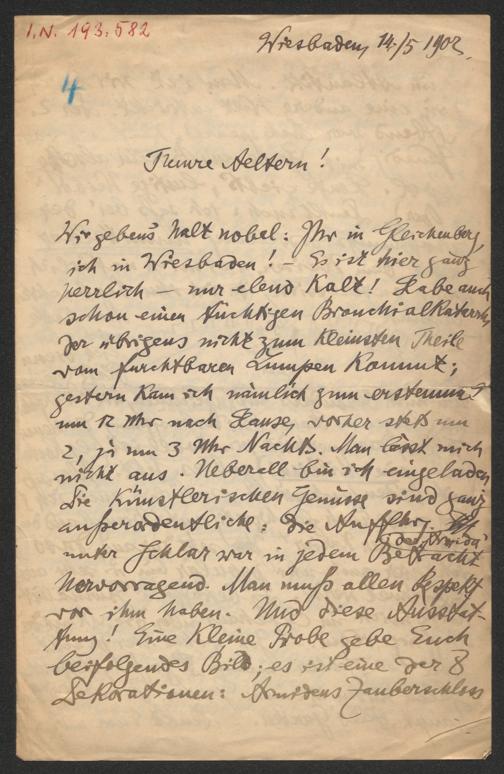 I.N. 193.582
Wiesbaden, 14./5 1902.
4
Teure Aeltern!
Wir gebens halt nobel: Ihr in Gleichenberg,
ich in Wiesbaden! – Es ist hier ganz
herrlich – nur elend kalt! Habe auch
schon einen tüchtigen Bronchialkatarrh,
der übrigens nicht zum kleinsten Theile
vom furchtbaren Lumpen kommt;
gestern kam ich nämlich zum erstenmal
um 12 Uhr nach Hause, vorher stets um
2, ja um 3 Uhr Nachts. Man lässt mich
nicht aus. Ueberall bin ich eingeladen
Die künstlerischen Genüsse sind ganz
außerordentliche: die Auffhrg.
der "Armida"
unter Schlar war in jedem Betracht
hervorragend. Man muß allen Respekt
vor ihm haben. Und diese Ausstat-
tung! Eine kleine Probe gebe Euch
beifolgendes Bild; es ist eine der 8
Dekorationen: Armidens Zauberschloss